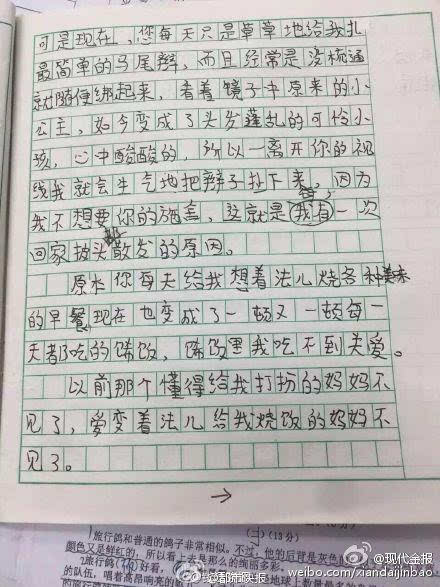 可是现在,您每天只是草草地给我扎
最简单的马尾辫,而且经常是没梳通
就随便绑起来,看着镜子中原来的小
公主,如今变成了头发蓬乱的可怜小
孩,心中酸酸的,所以一离开你的视
线我就会生气地把辫子扯下来,因为
我不想要你的施舍,这就是我有一次
回家披头散发的原因。
原本你每天给我想着法儿烧各种美味
的早餐现在也变成了一顿又一顿每一
天都吃的馊饭,馊饭里我吃不到关爱。
以前那个懂得给我打扮的妈妈不
见了,爱变着法儿给我烧饭的妈妈不
见了。
→
旅行鸽和普通的鸽子非常相似。不过,他的后背是灰色
颜色又是鲜红的,所以看上去是那么的绚丽多彩。
旅行鸽 好看,
的队伍,唱着高昂响亮的
@现代金报
weibo.com/xiandaijinbao